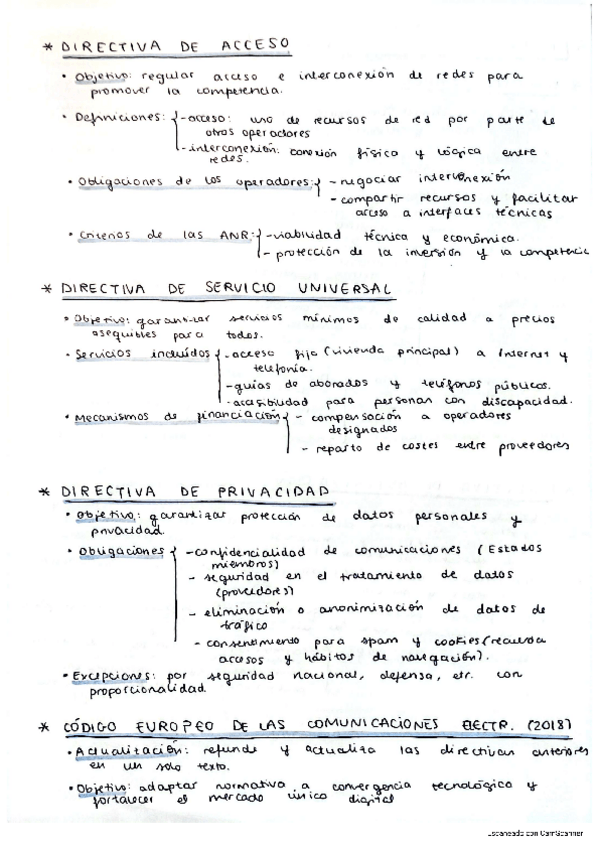 * DIRECTIVA DE ACCESO
• Objetivo: regular acceso e interconexión de redes para
promover la competencia.
• Definiciones: { -acceso: uso de recursos de red por parte de
otros operadores
-interconexión: conexión física y lógica entre
redes.
• Obligaciones de los operadores: { - negociar interconexión
- compartir recursos y facilitar
acceso a interfaces técnicas
• Criterios de las ANR: { -viabilidad técnica y económica.
- protección de la inversión y la competencia
* DIRECTIVA DE SERVICIO UNIVERSAL
• Objetivo: garantizar servicios mínimos de calidad a precios
asequibles para todos.
• Servicios incluídos { -acceso fijo (vivienda principal) a internet y
telefonía.
-guías de abonados y teléfonos públicos.
-accesibilidad para personas con discapacidad.
• Mecanismos de financiación { - compensación a operadores
designados
- reparto de costes entre proveedores
* DIRECTIVA DE PRIVACIDAD
• Objetivo: garantizar protección de datos personales y
privacidad.
• Obligaciones { -confidencialidad de comunicaciones (Estados
miembros)
- seguridad en el tratamiento de datos
(proveedores)
- eliminación o anonimización de datos de
tráfico
- consentimiento para spam y cookies (recuerda
accesos y hábitos de navegación).
• Excepciones: por seguridad nacional, defensa, etc. con
proporcionalidad.
* CÓDIGO EUROPEO DE LAS COMUNICACIONES ELECTR. (2018)
• Actualización: refunde y actualiza las directivas anteriores
en un solo texto.
• Objetivo: adaptar normativa a convergencia tecnológica y
fortalecer el mercado único digital
Escaneado con CamScanner